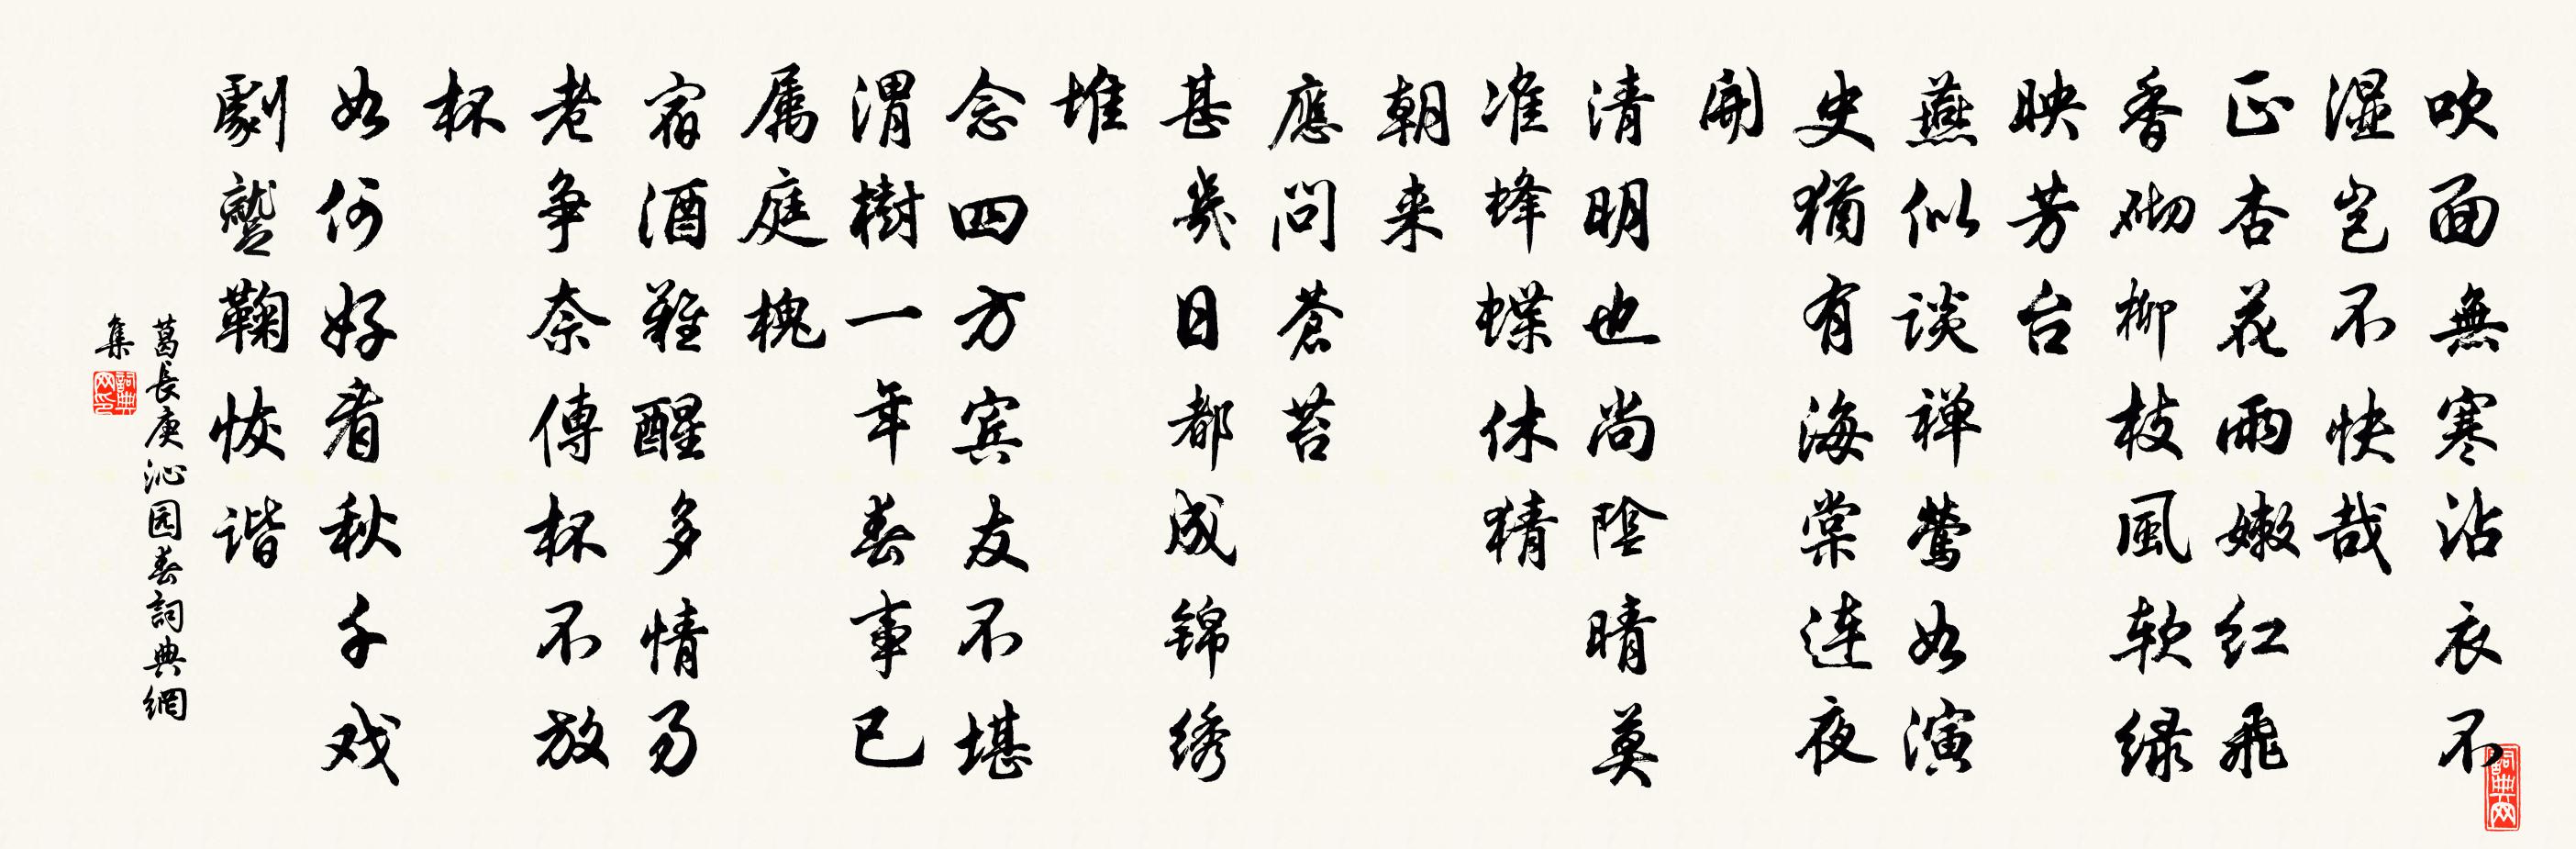 吹面無寒沾衣不
湿豈不快哉
正杏花雨嫩红飛
香砌柳枝風软绿
映芳台
燕似谈禅鶯如演
史猶有海棠连夜
開
清明也尚陰晴莫
准蜂蝶休猜
朝来
應問蒼苔
甚幾日都成锦绣
堆
念四方宾友不堪
渭樹一年春事已
属庭槐
宿酒難醒多情易
老争奈傳杯不放
杯
如何好看秋千戏
劇蹵鞠恢谐
葛長庚沁园春詞典網
集
詞典网印
詞典网